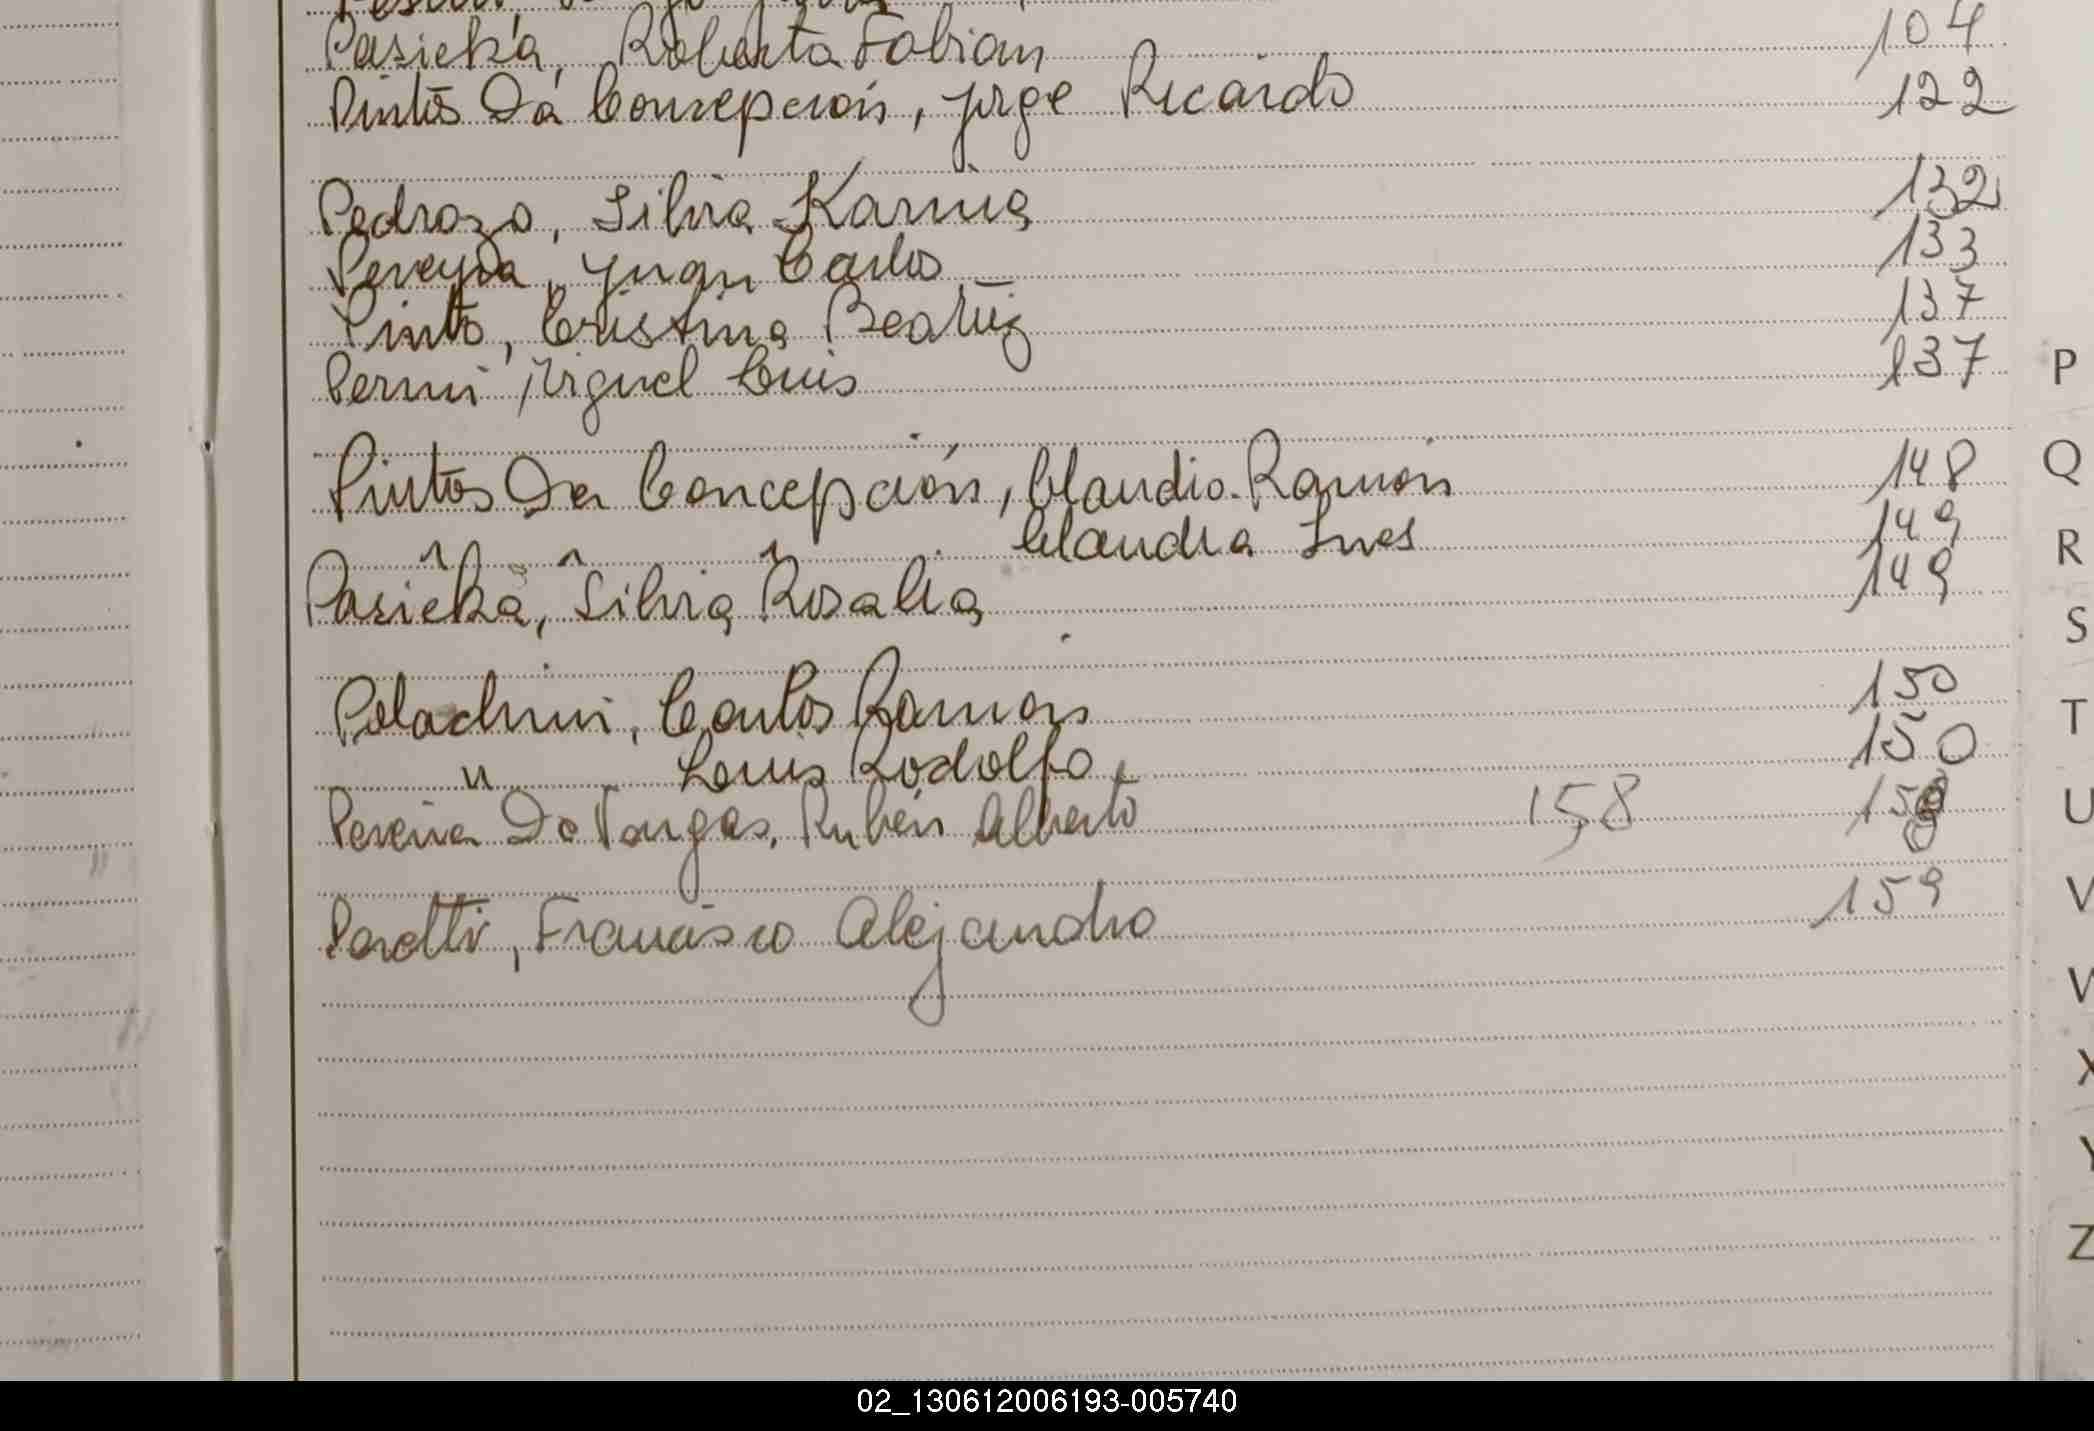 Pasieka, Roberto Fabian 104
Pintos Da Concepción, Jorge Ricardo 122
Pedrozo, Silvia Karina 132
Pereyra, Juan Carlos 133
Pinto, Cristina Beatriz 137
Perini Miguel Luis 137
Pintos Da Concepción, Claudio Ramón 148
Claudia Ines 149
Pasieka, Silvia Rosalia 149
Peladini, Carlos Ramón 150
" Luis Rodolfo 150
Pereira Do Vargas, Rubén Alberto 158
Peretti, Francisco Alejandro 159
P
Q
R
S
T
U
V
W
X
Y
Z
02_130612006193-005740